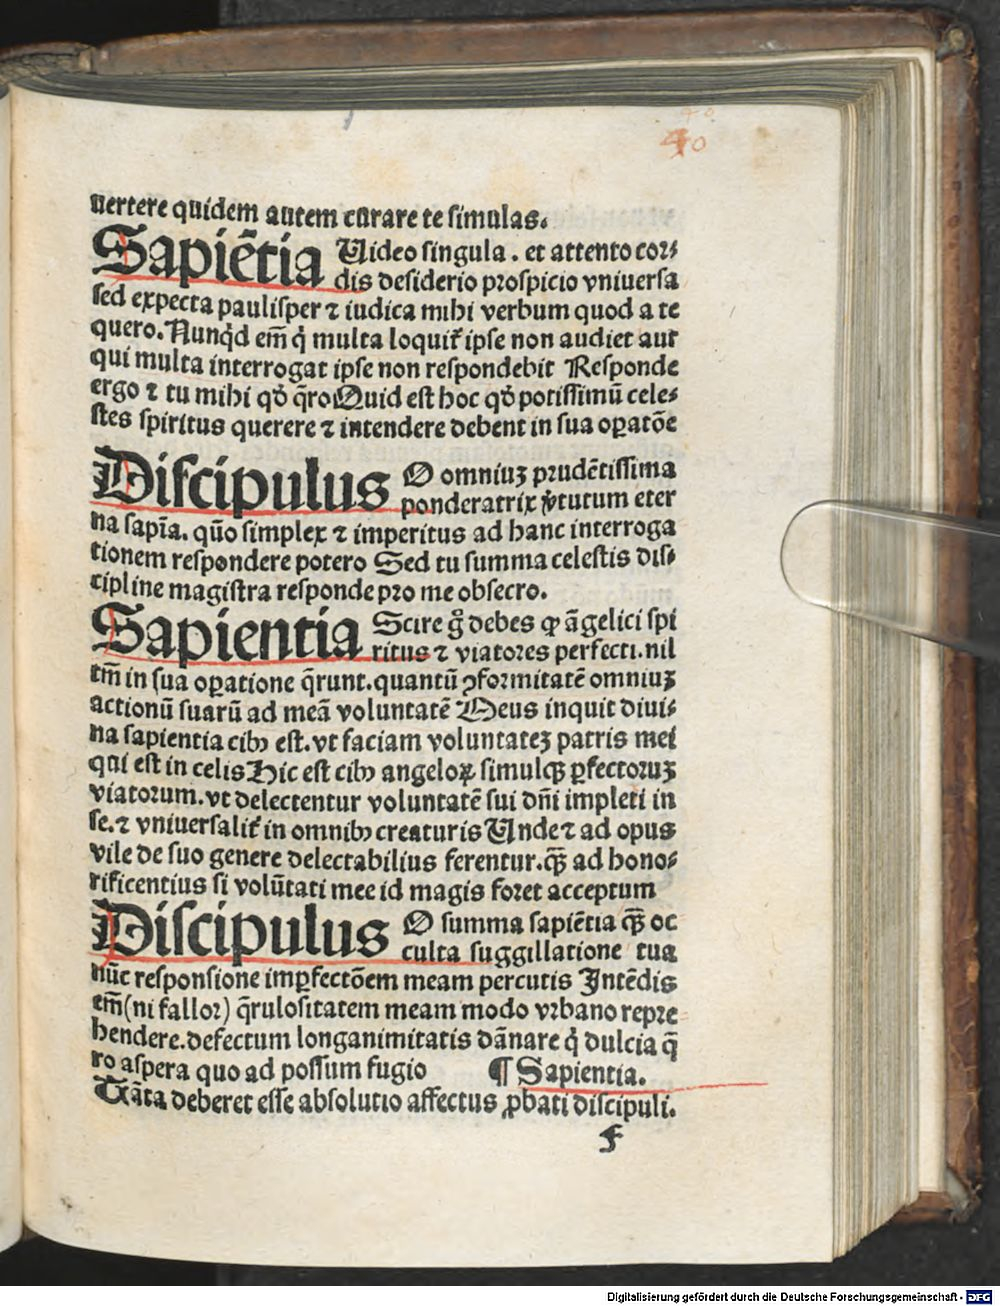 40
40
uertere quidem autem curare te simulas.
Sapiẽtia Uideo singula . et attento cor⸗
dis desiderio prospicio vniuersa
sed expecta paulisper ⁊ iudica mihi verbum quod a te
quero. Nunq̇d em̃ q̇ multa loquit̃ ipse non audiet aut
qui multa interrogat ipse non respondebit Responde
ergo ⁊ tu mihi qd̛ q̃ro Quid est hoc qd̛ potissimũ cele⸗
stes spiritus querere ⁊ intendere debent in sua oꝑatõe
Discipulus O omniuꝫ prudẽtissima
ponderatrix v̓tutum eter
na sapĩa. quõ simplex ⁊ imperitus ad hanc interroga
tionem respondere potero Sed tu summa celestis dis⸗
cipline magistra responde pro me obsecro.
Sapientia Scire g̊ debes ꝙ ãgelici spi
ritus ⁊ viatores perfecti. nil
tm̃ in sua oꝑatione q̃runt. quantũ ꝯformitatẽ omniuꝫ
actionũ suarũ ad meã voluntatẽ Meus inquit diui⸗
na sapientia cibꝰ est. vt faciam voluntateꝫ patris mei
qui est in celis Hic est cibꝰ angeloꝝ simulqꝫ ꝑfectoruꝫ
viatorum. vt delectentur voluntatẽ sui dñi impleri in
se. ⁊ vniuersalit̃ in omnibꝰ creaturis Unde ⁊ ad opus
vile de suo genere delectabilius ferentur. qꝫ̃ ad hono⸗
rificentius si volũtati mee id magis foret acceptum
Discipulus O summa sapiẽtia qꝫ̃ oc
culta suggillatione tua
nũc responsione imꝑfectõem meam percutis Intẽdis
em̃ (ni fallor) q̃rulositatem meam modo vrbano repre
hendere. defectum longanimitatis dãnare q̇ dulcia q̃
ro aspera quo ad possum fugio ¶ Sapientia.
Tãta deberet esse absolutio affectus ꝓbati discipuli.
f
Digitalisierung gefördert durch die Deutsche Forschungsgemeinschaft - DFG